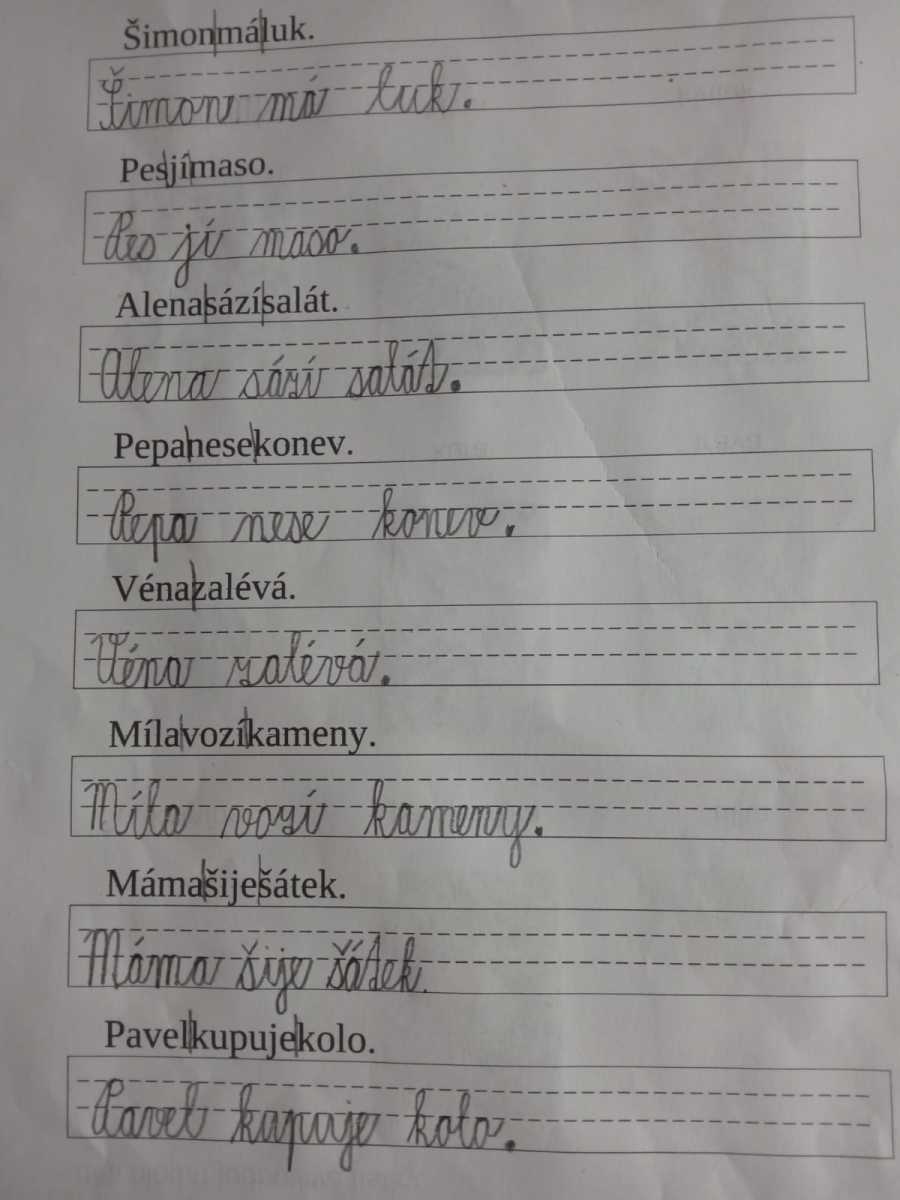 Šimonmáluk.
Šimon má luk.
Pesjímaso.
Pes jí maso.
Alenasázísalát.
Alena sází salát.
Pepanesekonev.
Pepa nese konev.
Vénazalévá.
Véna zalévá.
Mílavozíkameny.
Míla vozí kameny.
Mámašiješátek.
Máma šije šátek.
Pavelkupujekolo.
Pavel kupuje kolo.